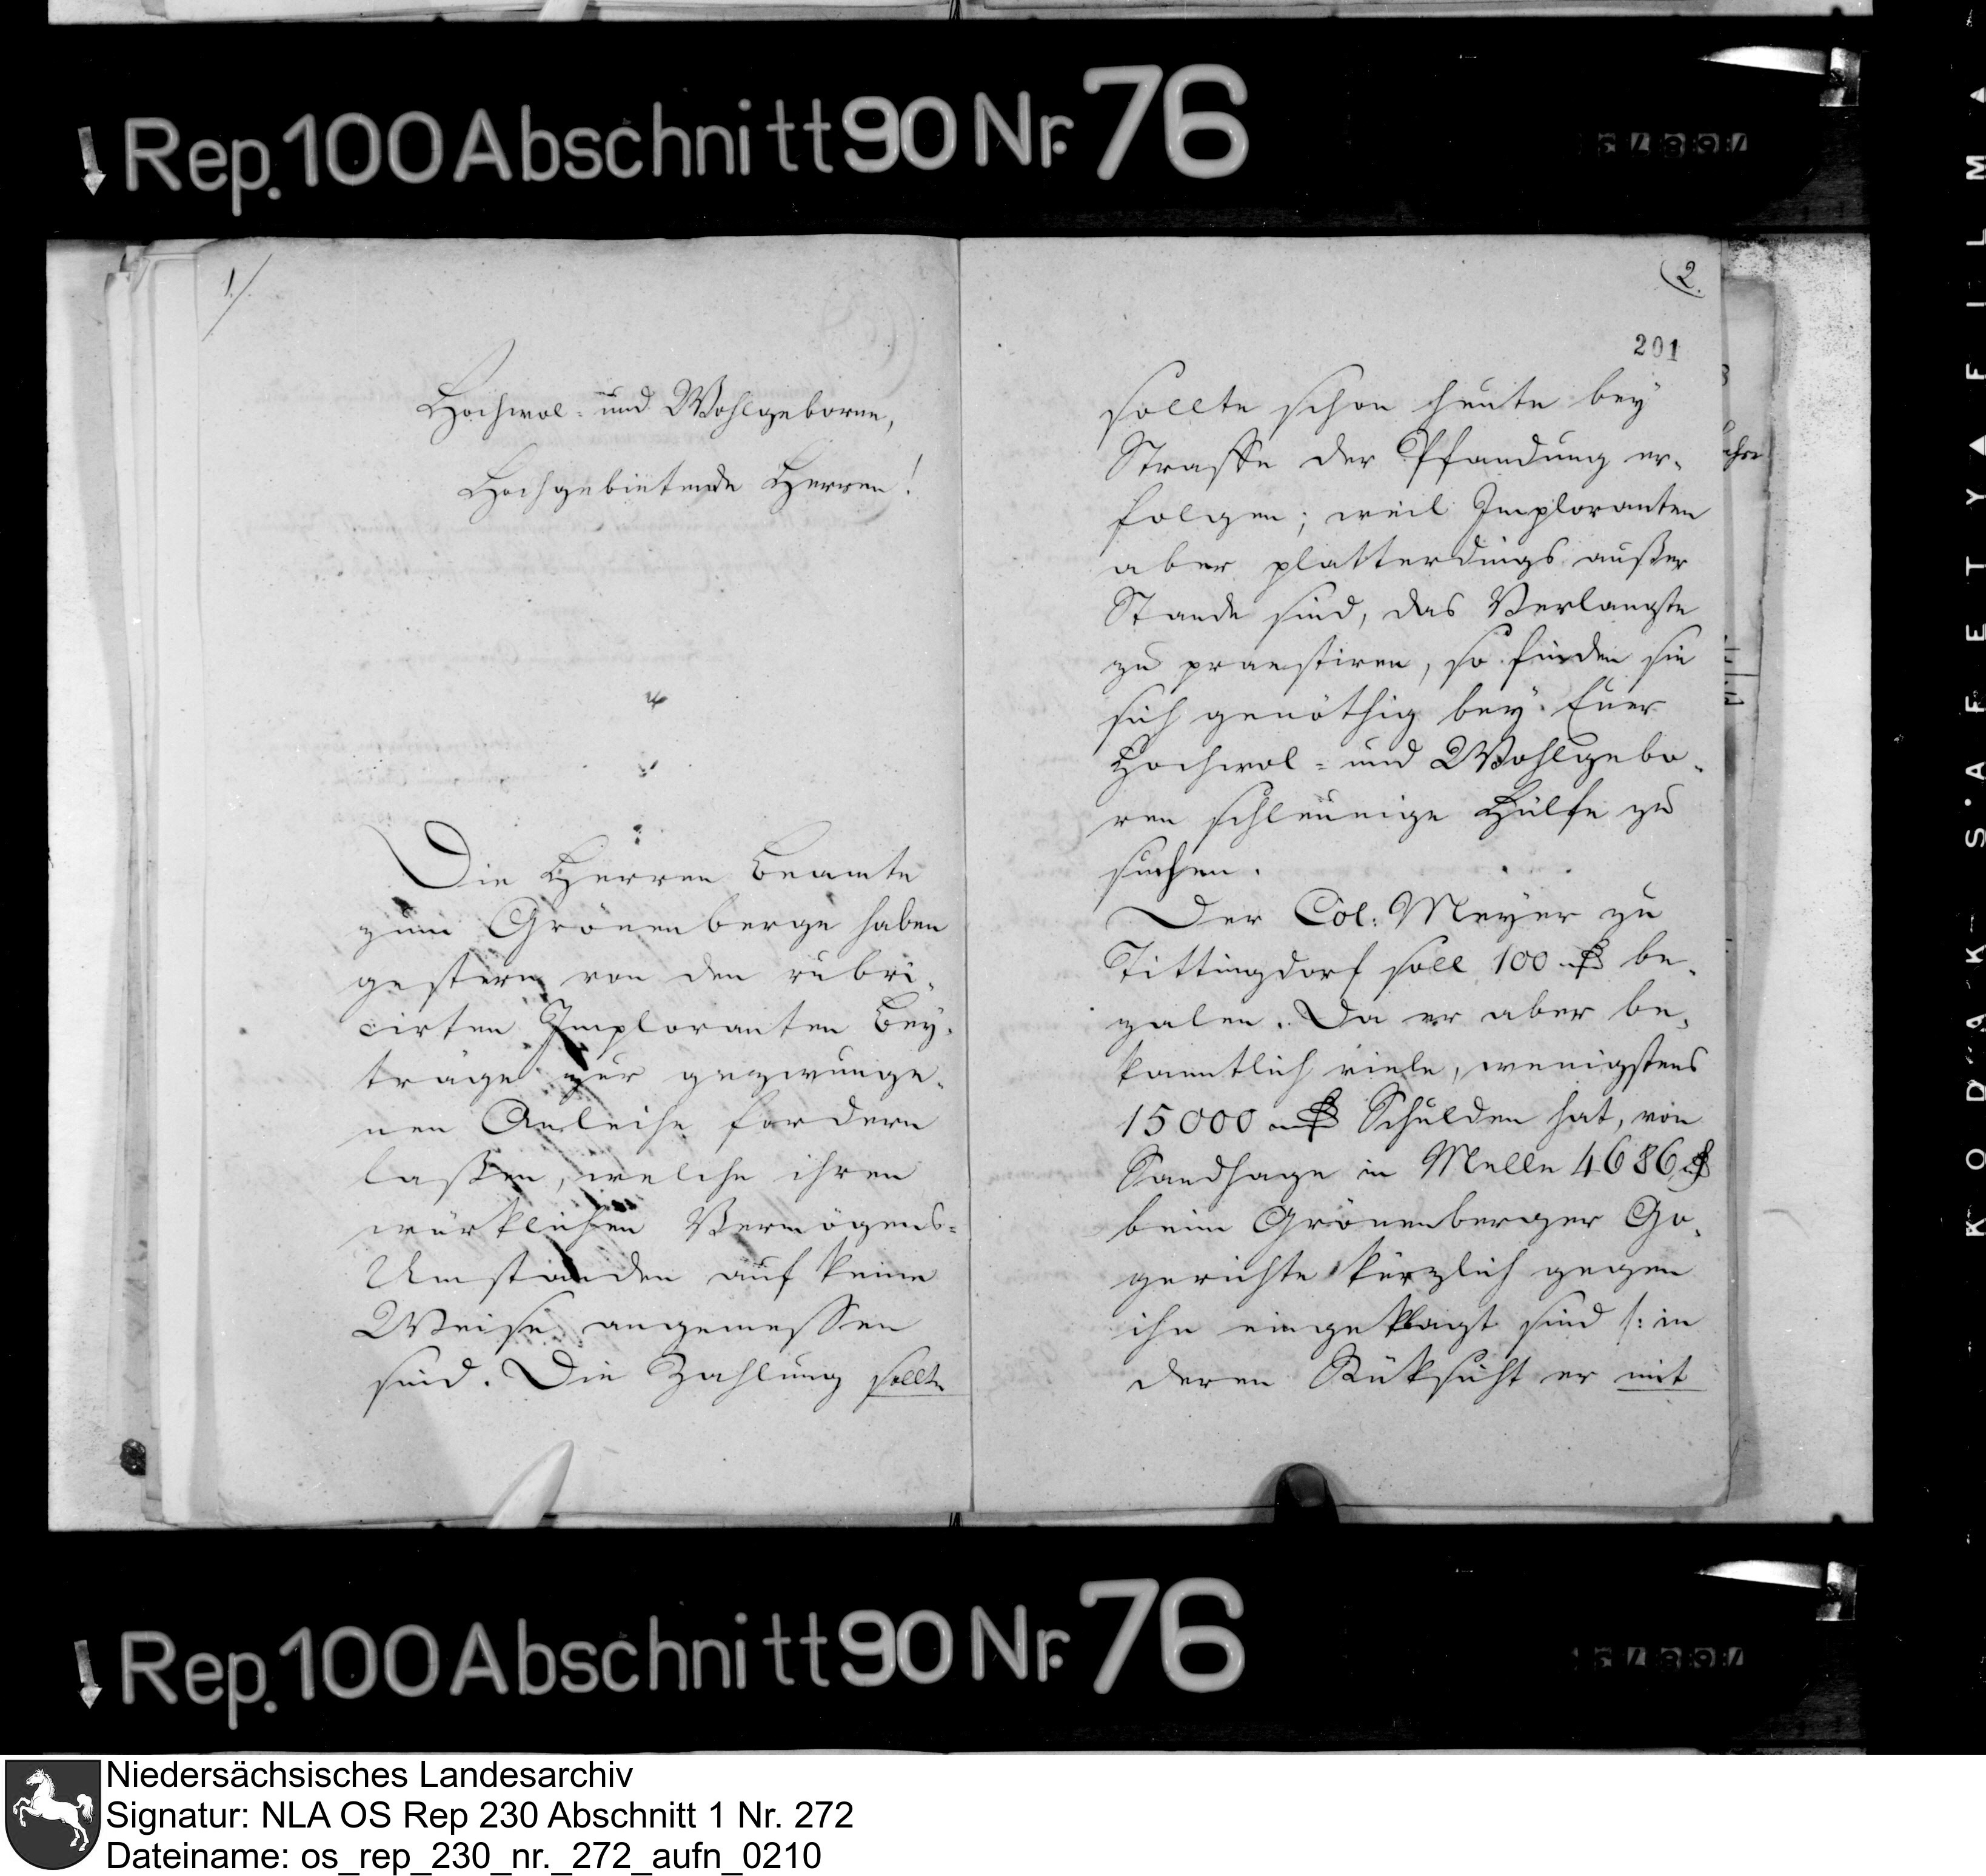 Rep. 100 Abschnitt 90 Nr. 76
1./
Hochwol- und Wohlgeborne,
Hochgebietende Herren!
Die Herren Beamte
zum Grönenberge haben
gestern von den rubri-
cirten Imploranten Bey-
träge zur gezwunge-
nen Anleihe fordern
laßen, welche ihren
würklichen Vermögens-
Umständen auf keine
Weise angemessen
sind. Die Zahlung sollte
2.
201
sollte schon heute bey
Strasse der Pfandung er-
folgen; weil Imploranten
aber platterdings außer
Stande sind, das Verlangte
zu praestiren, so finden sie
sich genöthig bey Euer
Hochwol- und Wohlgebo-
ren schleunige Hülfe zu
suchen.
Der Col: Meyer zu
Tittingdorf soll 100 rthl be-
zalen. Da er aber be-
kanntlich viele, wenigstens
15000 rthl Schulden hat, von
Sandhage in Melle 4686 rthl
beim Grönenberger Go-
gerichte kürzlich gegen
ihn eingeklagt sind /: in
deren Rüksicht er mit
Rep. 100 Abschnitt 90 Nr. 76
KODAK SAFETY FILM
Niedersächsisches Landesarchiv
Signatur: NLA OS Rep 230 Abschnitt 1 Nr. 272
Dateiname: os_rep_230_nr._272_aufn_0210